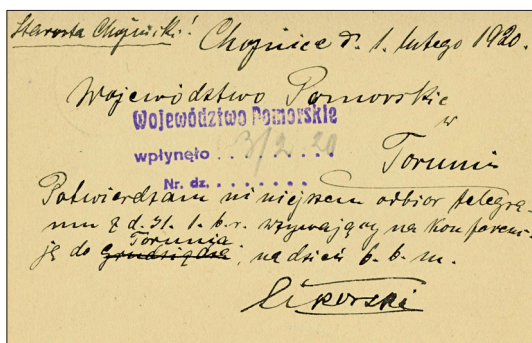 Starosta Chojnicki! Chojnice d. 1. lutego 1920.
Województwo Pomorskie
w
Województwo Pomorskie
wpłynęło . . 3/2 20 . .
Toruniu
Nr. dz. . . . . . . . .
Potwierdzam niniejszem odbiór telegra-
mu z d. 31. 1. b. r. wzywający na konferen-
Torunia
ję do Grudziądza, na dzień 6. b. m.
Sikorski